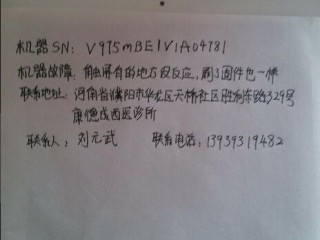 机器SN: V975mBE1V1A04781
机器故障: 触屏有的地方没反应,刷3固件也一样
联系地址: 河南省濮阳市华龙区天桥社区胜利东路329号
康德茂西医诊所
联系人: 刘元武 联系电话: 13939319482